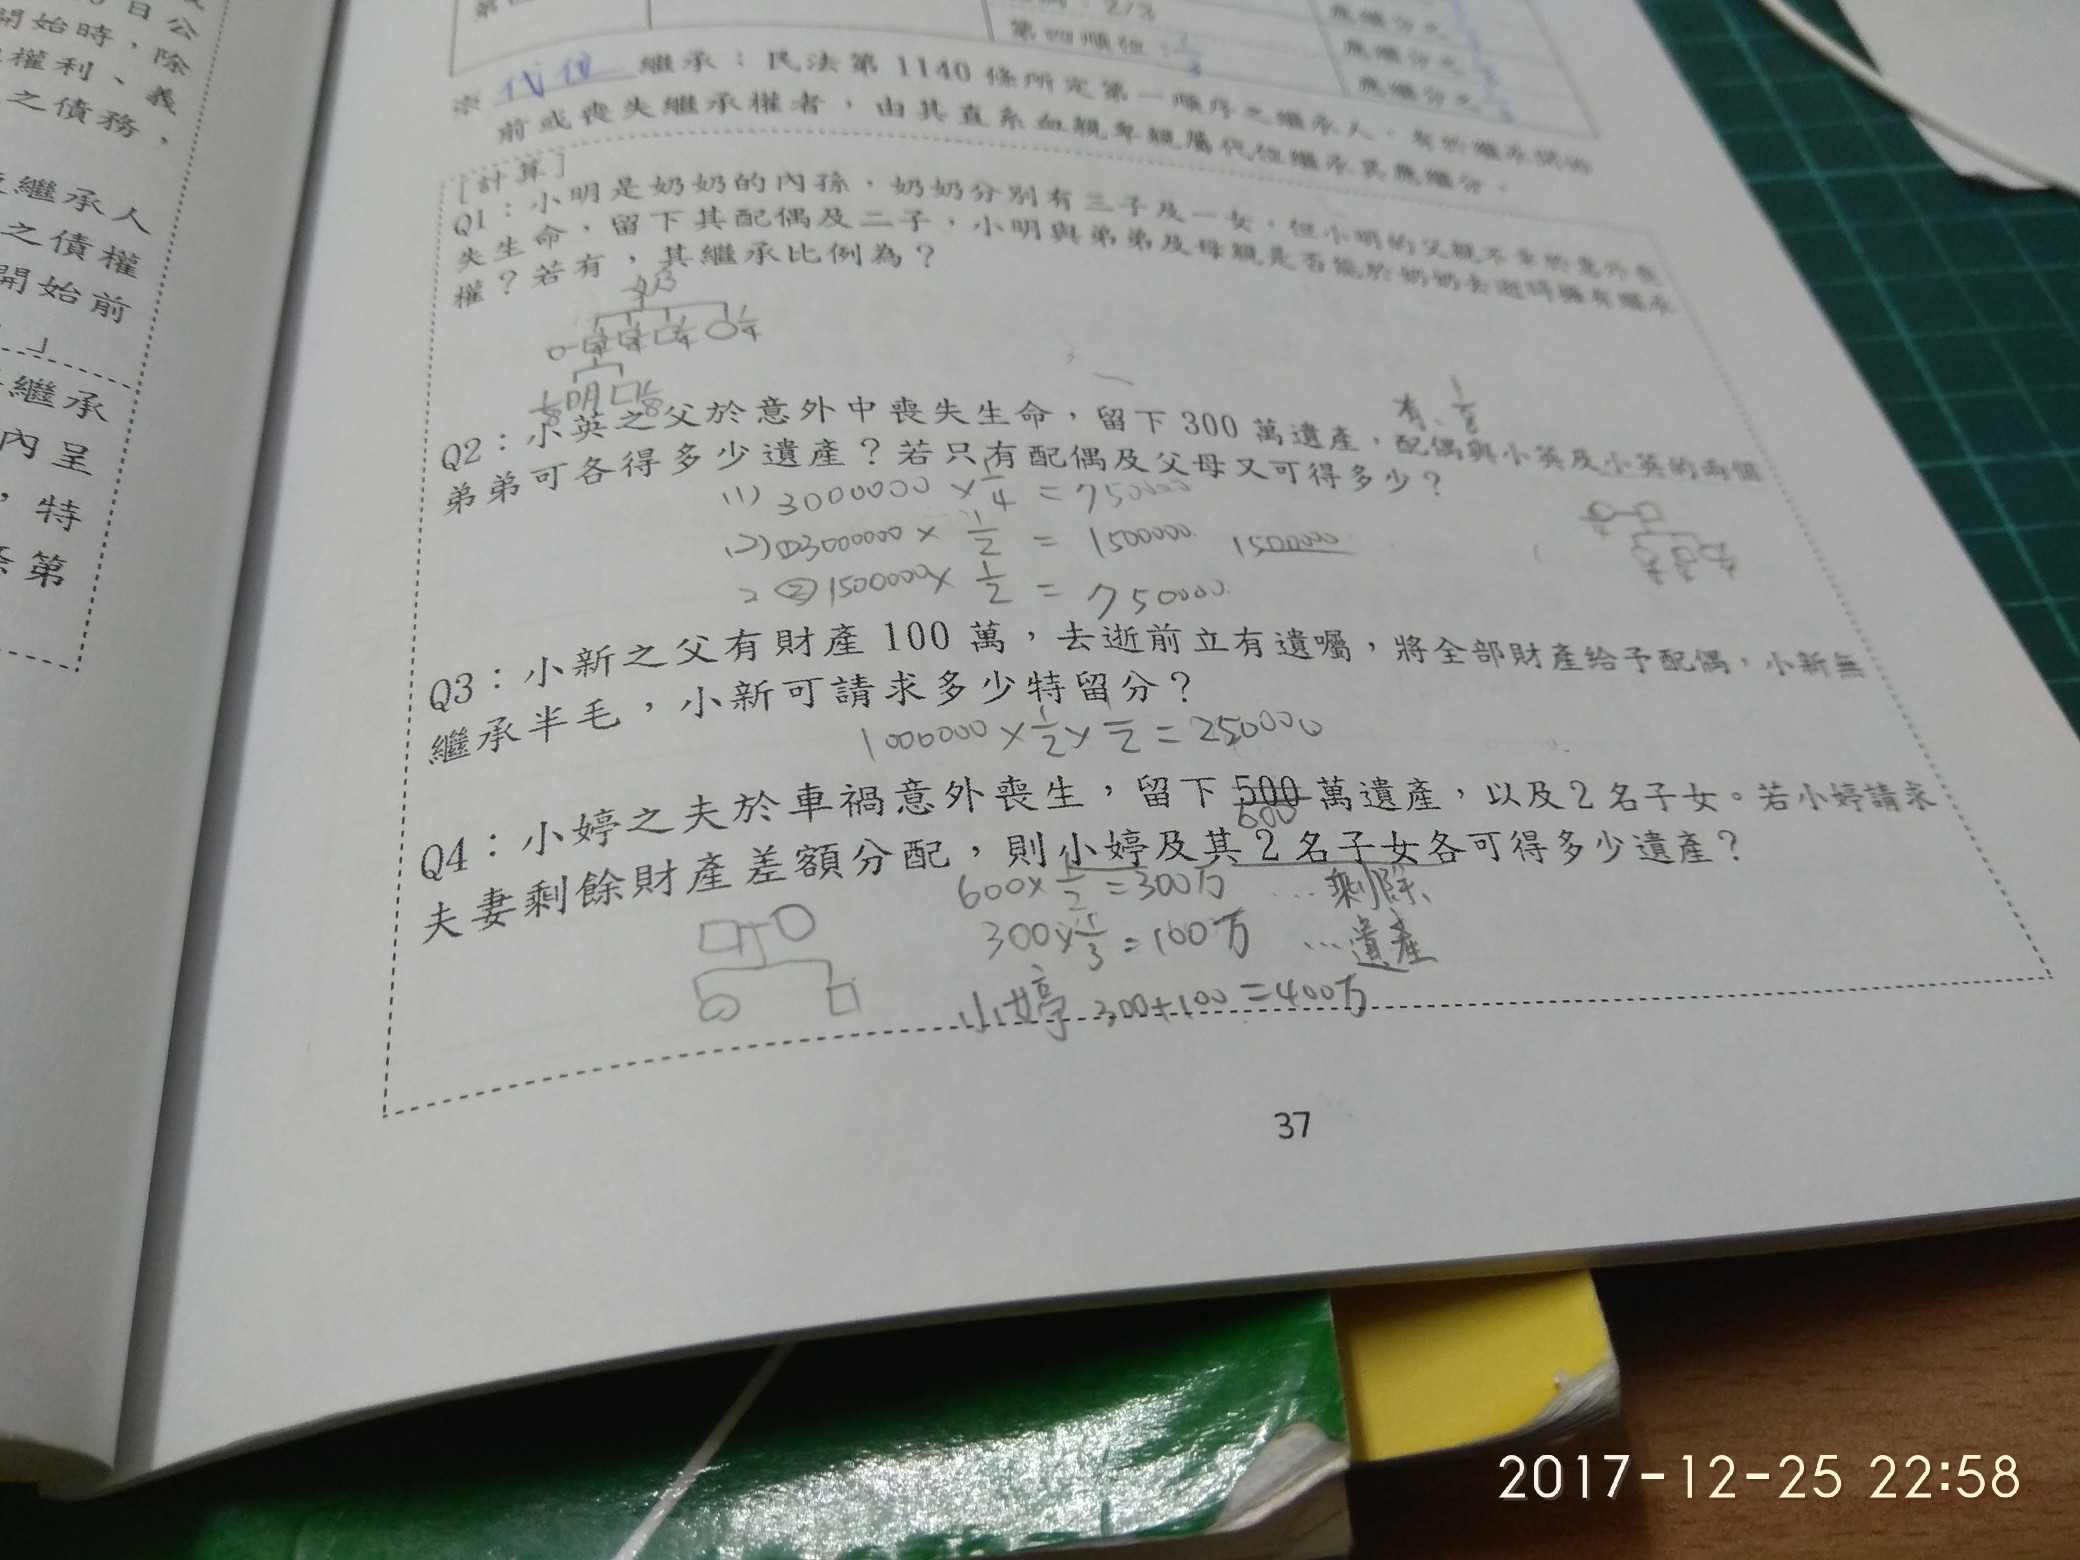 日公
開始時，除
權利、義
之債務，
繼承人
之債權
開始前
」
繼承
內呈
，特
第
2/3
第四順位：1/3
應繼分之
應繼分之
應繼分之
※代位繼承：民法第1140條所定第一順序之繼承人，有於繼承開始
前或喪失繼承權者，由其直系血親卑親屬代位繼承其應繼分。
[計算]
Q1：小明是奶奶的內孫，奶奶分別有三子及一女，但小明的父親不幸於意外喪
失生命，留下其配偶及二子，小明與弟弟及母親是否能於奶奶去逝時擁有繼承
權？若有，其繼承比例為？
1/4 1/4 1/4 1/4
1/8 明 1/8
有、1/8
Q2：小英之父於意外中喪失生命，留下300萬遺產，配偶與小英及小英的兩個
弟弟可各得多少遺產？若只有配偶及父母又可得多少？
(1) 3000000 × 1/4 = 750000
(2) ① 3000000 × 1/2 = 1500000 1500000
2 ② 1500000 × 1/2 = 750000
Q3：小新之父有財產100萬，去逝前立有遺囑，將全部財產給予配偶，小新無
繼承半毛，小新可請求多少特留分？
1000000 × 1/2 × 1/2 = 250000
Q4：小婷之夫於車禍意外喪生，留下500萬遺產，以及2名子女。若小婷請求
600
夫妻剩餘財產差額分配，則小婷及其2名子女各可得多少遺產？
600 × 1/2 = 300万 …剩餘
300 × 1/3 = 100万 …遺產
小婷 300+100=400万
37
2017-12-25 22:58